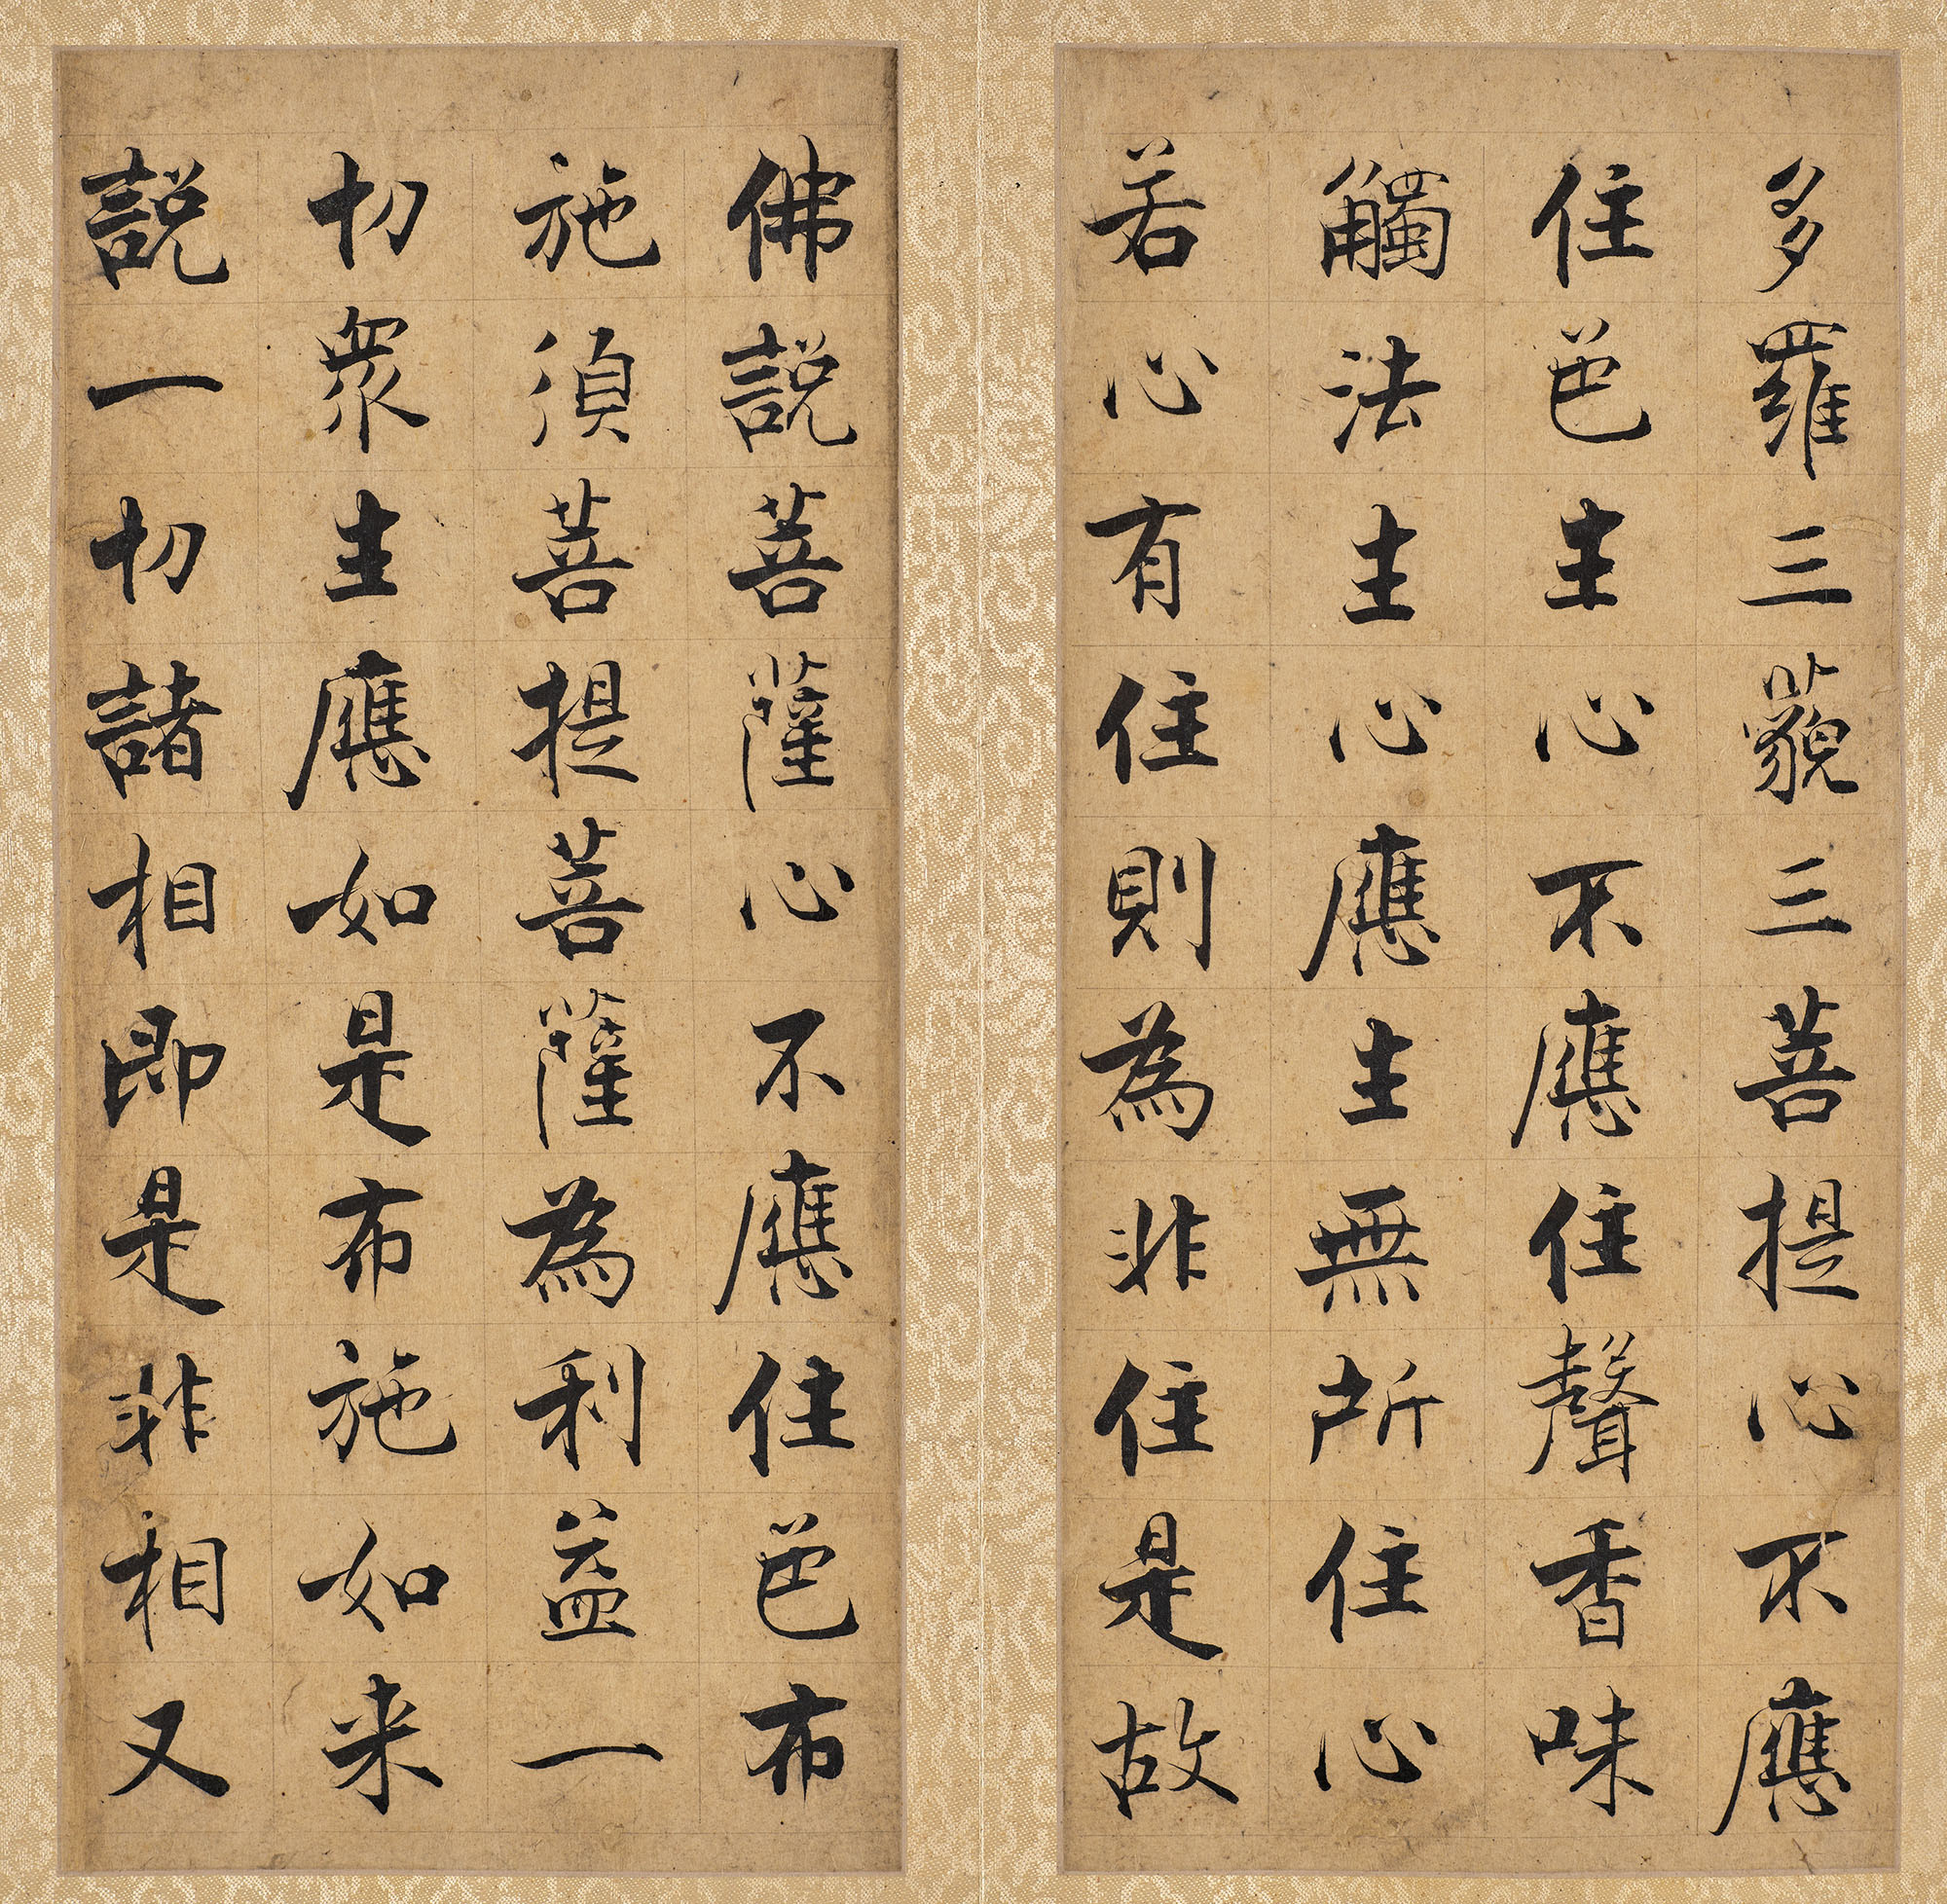 多羅三藐三菩提心不應
住色生心不應住聲香味
觸法生心應生無所住心
若心有住則為非住是故
佛說菩薩心不應住色布
施須菩提菩薩為利益一
切眾生應如是布施如来
說一切諸相即是非相又